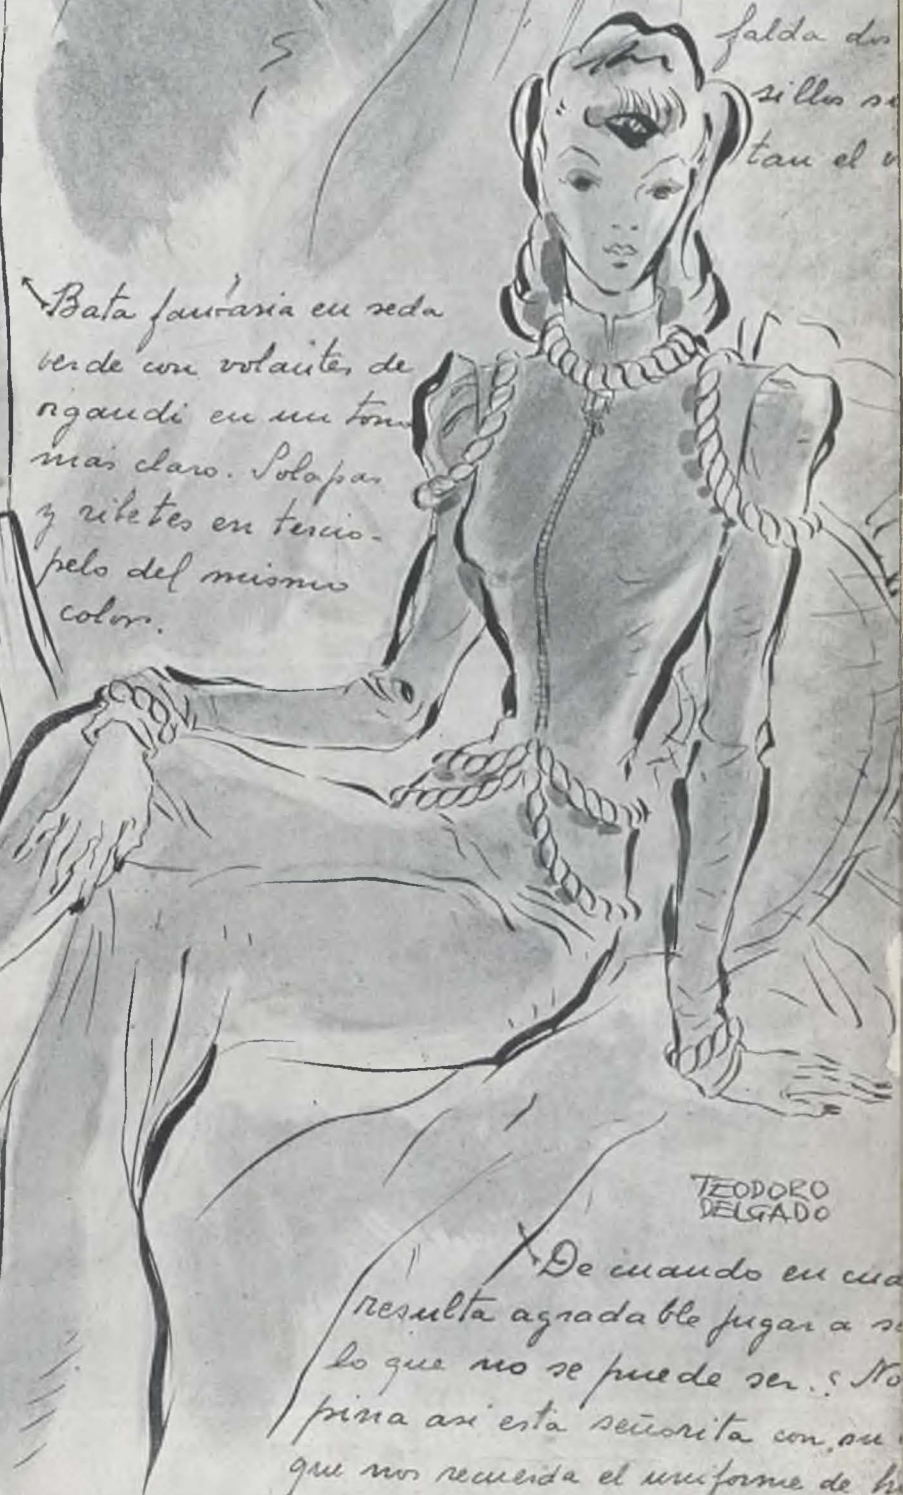 falda dos
sillos su
tan el v
Bata fantasia en seda
verde con volantes de
rgandi en un tono
más claro. Solapas
y ribetes en tercio-
pelo del mismo
color.
TEODORO
DELGADO
De cuando en cua
resulta agradable jugar a se
lo que no se puede ser. ¿ No
pina asi esta señorita con su
que nos recuerda el uniforme de h